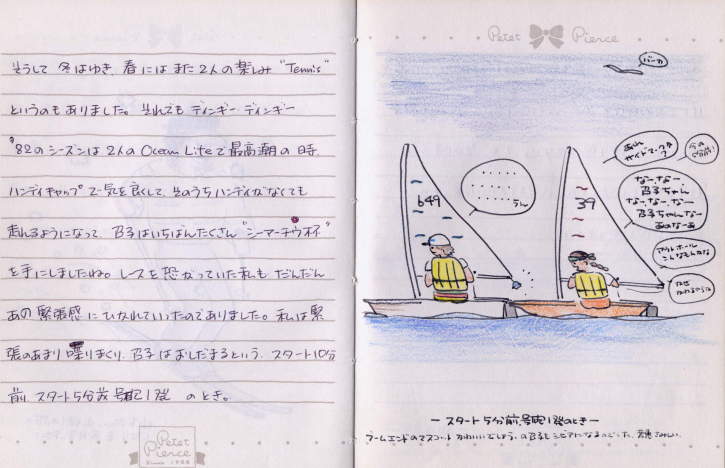 そうして 冬はゆき、春には また 2人の楽しみ "Tennis"
というのもありました。それでも ディンギー ディンギー
'82のシーズンは 2人の Ocean Lifeで最高潮の時.
ハンディキャップで気を良くして、そのうちハンディがなくても
走れるようになって、乃子はいちばんたくさん "シーマーチ
を手にしましたね。レースを恐がっていた私も だんだん
あの緊張感にひかれていったのでありました。私は緊
張のあまり 喋りまくり、乃子はおしだまるという. スタート10分
前. スタート5分前 号砲1発 のとき。
Petet Pierce
Petet Pierce
バーカ
649
39
うん
あれ サイドマークかな?
なーなー 乃子ちゃん なーなーなー 乃子ちゃんなー あのなーあ
アウトホール こんなもんかな
かぜ かわるかなァ
ースタート5分前、号砲1発のときー
ブームエンドのマスコット かわいいでしょう. 乃子も シビアになるのでした.